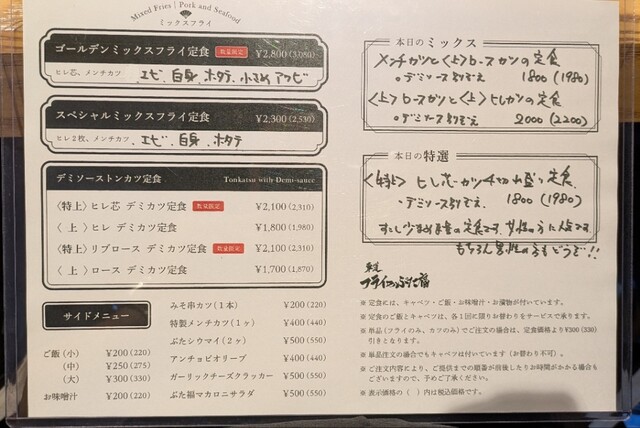 Mixed Fries | Pork and Seafood
ミックスフライ
ゴールデンミックスフライ定食 数量限定 ¥2,800(3,080)
ヒレ芯、メンチカツ エビ 白身 ホタテ 小さめアワビ
スペシャルミックスフライ定食 ¥2,300(2,530)
ヒレ2枚、メンチカツ エビ、白身、ホタテ
デミソーストンカツ定食 Tonkatsu with Demi-sauce
〈特上〉ヒレ芯 デミカツ定食 数量限定 ¥2,100(2,310)
〈 上 〉ヒレ デミカツ定食 ¥1,800(1,980)
〈特上〉リブロース デミカツ定食 数量限定 ¥2,100(2,310)
〈 上 〉ロース デミカツ定食 ¥1,700(1,870)
サイドメニュー
ご飯(小) ¥200(220)
(中) ¥250(275)
(大) ¥300(330)
お味噌汁 ¥200(220)
みそ串カツ(1本) ¥200(220)
特製メンチカツ(1ヶ) ¥400(440)
ぶたシウマイ(2ヶ) ¥500(550)
アンチョビオリーブ ¥400(440)
ガーリックチーズクラッカー ¥500(550)
ぶた福マカロニサラダ ¥500(550)
本日のミックス
メンチカツと〈上〉ロースカツの定食
。デミソース 1800(1980)
〈上〉ロースカツと〈上〉ヒレカツの定食
。デミソース 2000(2200)
本日の特選
〈特上〉ヒレ芯カツ4切れ盛り定食
・デミソース 1800(1980)
すこし少なめ量の定食です。女性の方に人気です。
もちろん男性の方もどうぞ!!
フライのぶた福
※ 定食には、キャベツ・ご飯・お味噌汁・お漬物が付いています。
※ 定食のご飯とキャベツは、各1回に限りお替わりをサービスで承ります。
※ 単品(フライのみ、カツのみ)でご注文の場合は、定食価格より¥300(330)
引きとなります。
※ 単品注文の場合でもキャベツは付いています(お替わり不可)。
※ ご注文内容により、ご提供までの順番が前後したりお時間がかかる場合も
ございますので、予めご了承ください。
※ 表示価格の( )内は税込価格です。